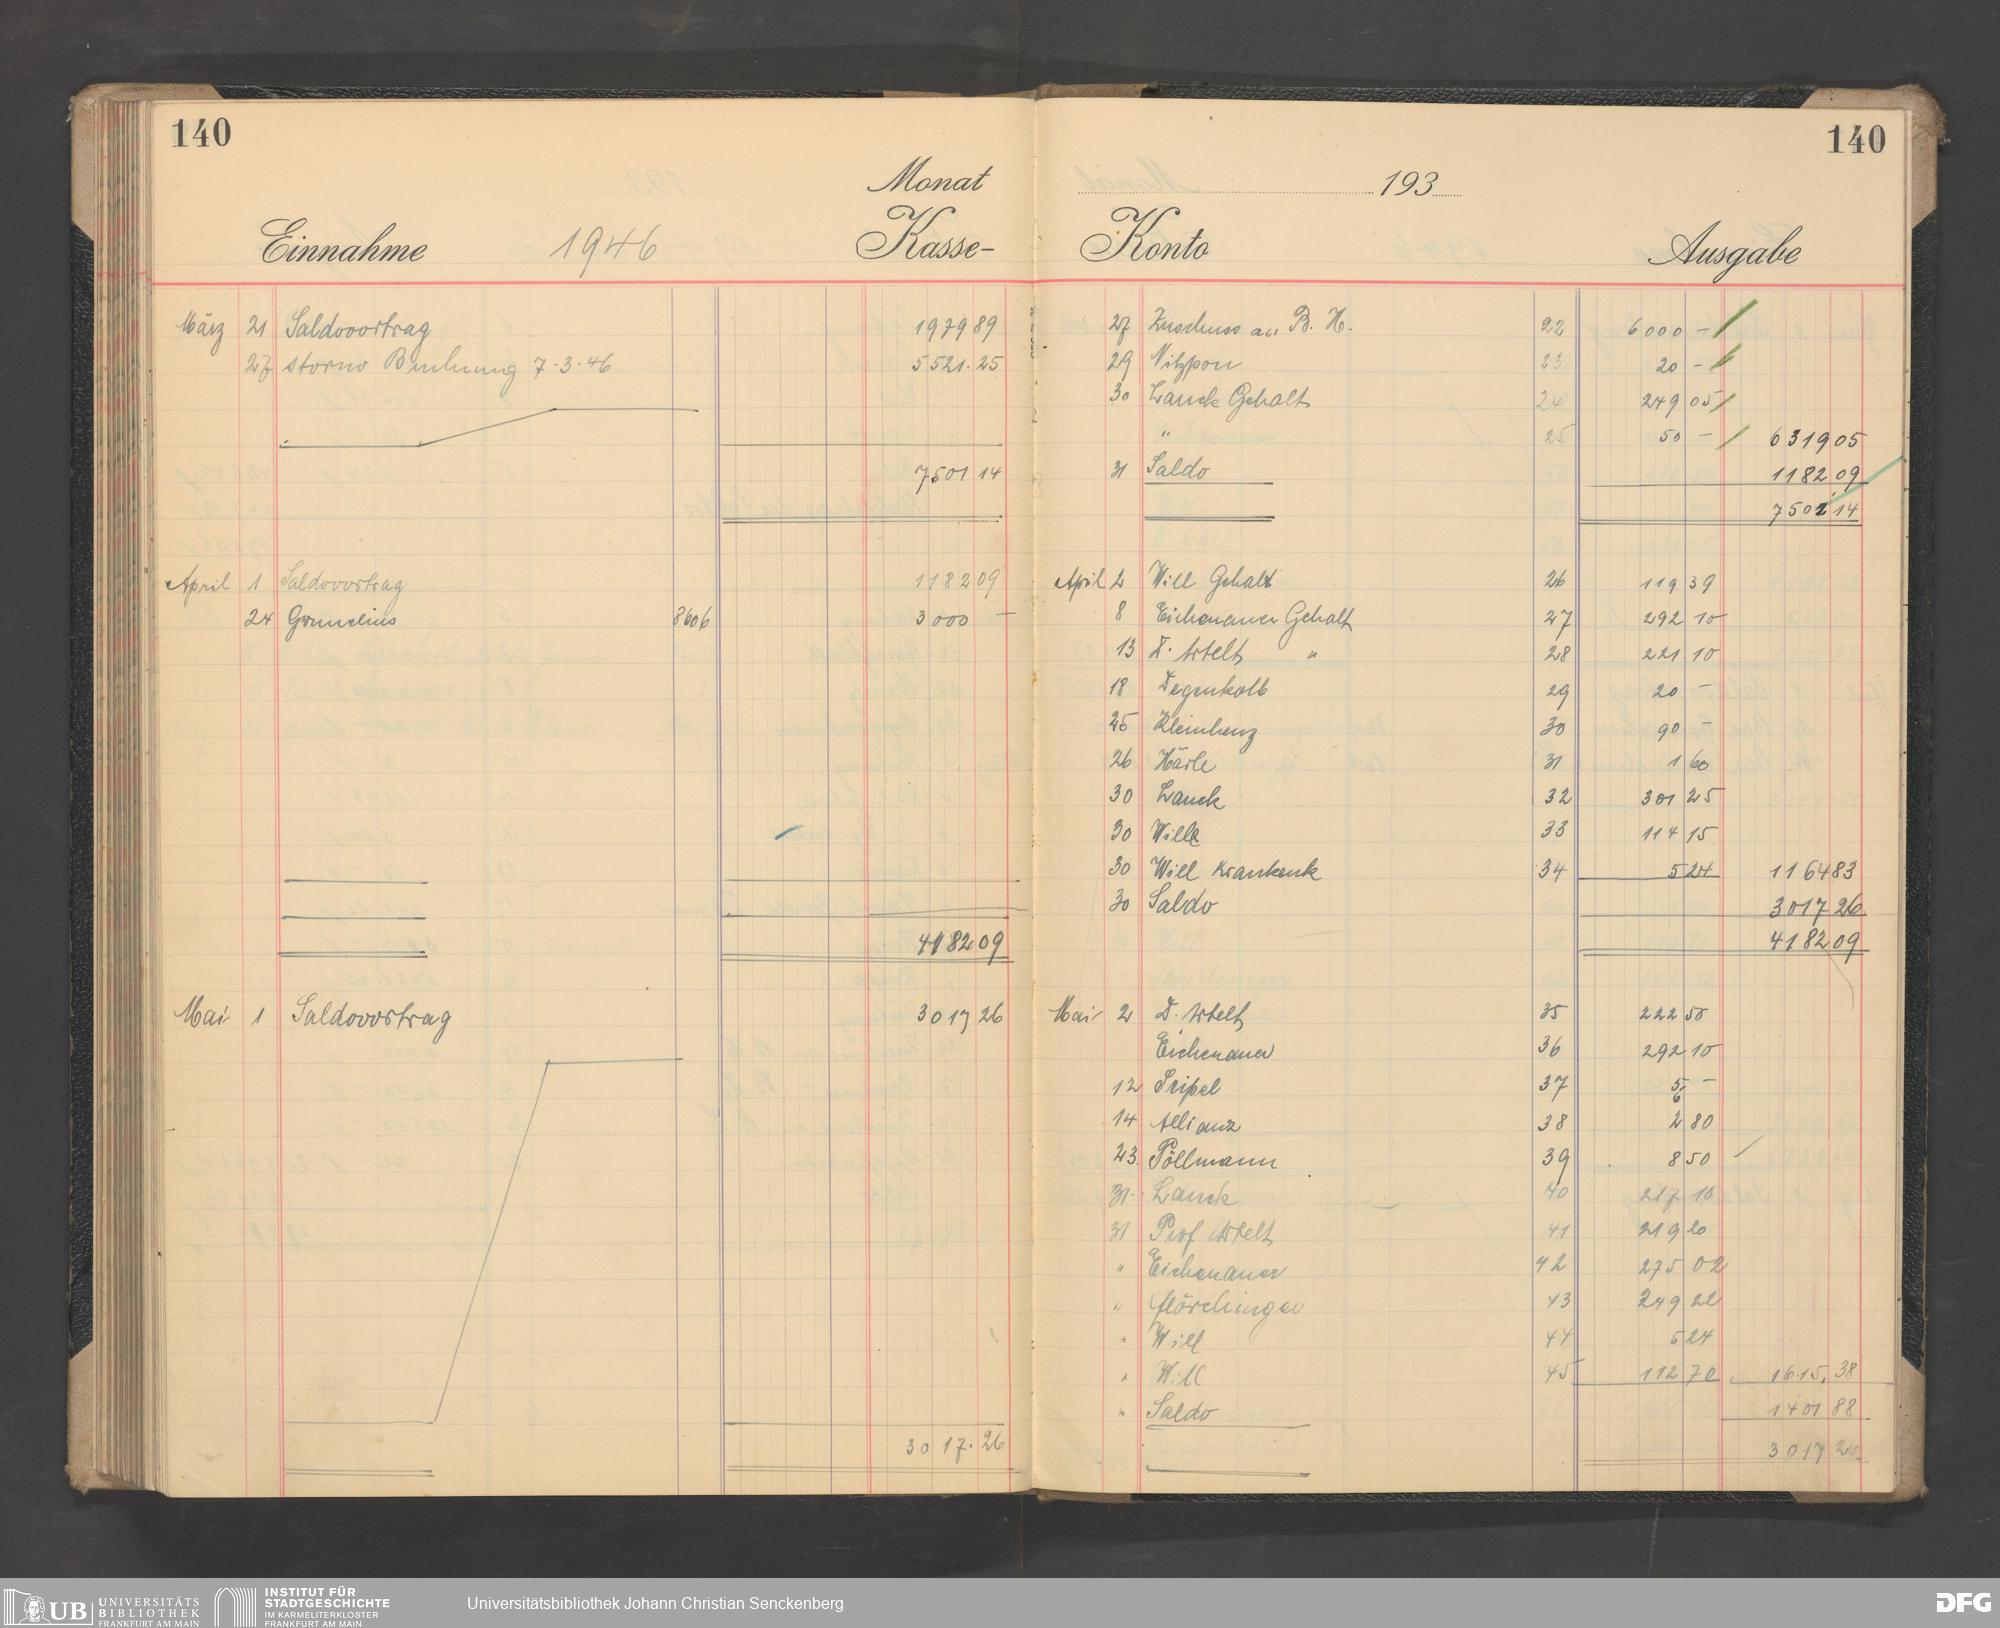 140
Monat
Einnahme 1946 Kasse-
März 21 Saldovortrag 1979 89
27 storno Buchung 7.3.46 5521.25
7501 14
April 1 Saldovortrag 1182 09
24 Grunelius 8606 3000 —
4182 09
Mai 1 Saldovortrag 3017 26
3017.26
140
193
Konto Ausgabe
27 Zuschuss an B. H. 22 6000 —
29 23 20 —
30 Lauck Gehalt 24 249 05
" 25 50 — 6319 05
31 Saldo 1182 09
7501 14
April 2 Will Gehalt 26 119 39
8 Eichenauer Gehalt 27 292 10
13 D. Artelt " 28 221 10
18 Degenkolb 29 20 —
25 Kleinhenz 30 90 —
26 Härle 31 1 60
30 Lauck 32 301 25
30 Will 33 114 15
30 Will Krankenk 34 5 24 1164 83
30 Saldo 3017 26
4182 09
Mai 2 D. Artelt 35 222 50
Eichenauer 36 292 10
12 37 5 —
14 Allianz 38 2 80
23. Pöllmann 39 8 50
31. Lauck 40 217 10
31 Prof Artelt 41 219 20
" Eichenauer 42 275 02
" 43 249 22
" Will 44 5 24
" Will 45 112 70 1615.38
" Saldo 1401 88
3017 26
UB UNIVERSITÄTS
BIBLIOTHEK
FRANKFURT AM MAIN
INSTITUT FÜR
STADTGESCHICHTE
IM KARMELITERKLOSTER
FRANKFURT AM MAIN
Universitätsbibliothek Johann Christian Senckenberg
DFG